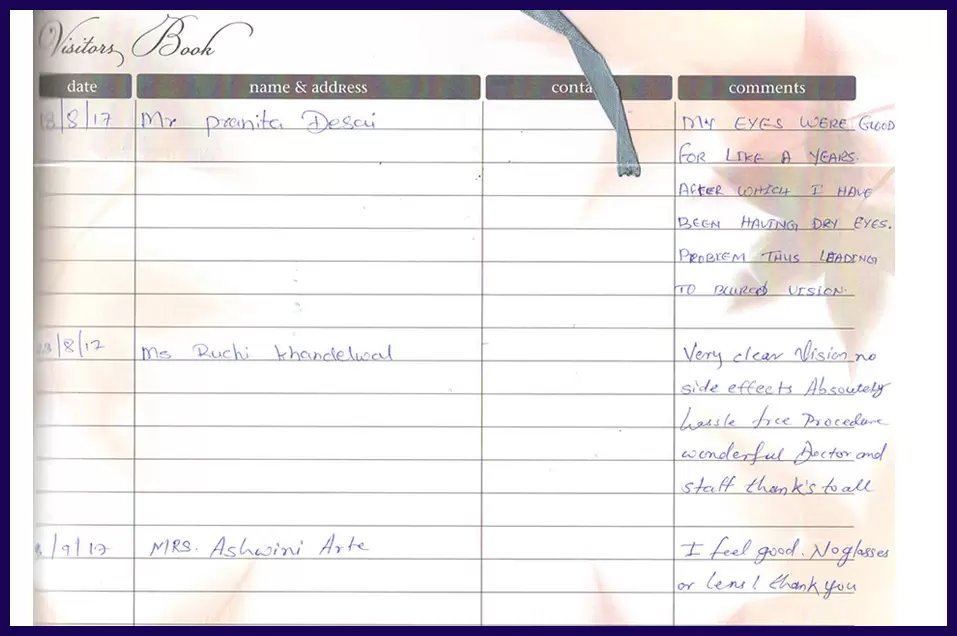 Visitors Book
date name & address conta comments
/8/17 Mr pranita Desai MY EYES WERE GOOD
FOR LIKE A YEARS.
AFTER WHICH I HAVE
BEEN HAVING DRY EYES.
PROBLEM THUS LEADING
TO BLURED VISION.
/8/17 Ms Ruchi Khandelwal Very clear Vision no
side effects Absoutely
hassle free Procedure
wonderful Doctor and
staff thank's to all
/9/17 MRS. Ashwini Arte I feel good. No glasses
or lens! thank you